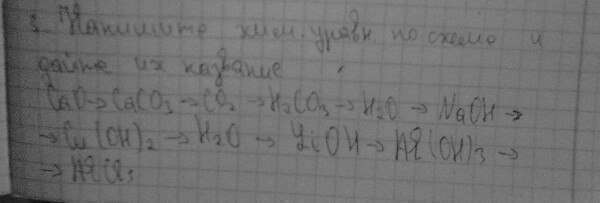 3. Напишите хим. уравн по схеме и
дайте их название
CaO→CaCO₃→CO₂→H₂CO₃→H₂O→NaOH→
→Cu(OH)₂→H₂O→LiOH→Al(OH)₃→
→AlCl₃